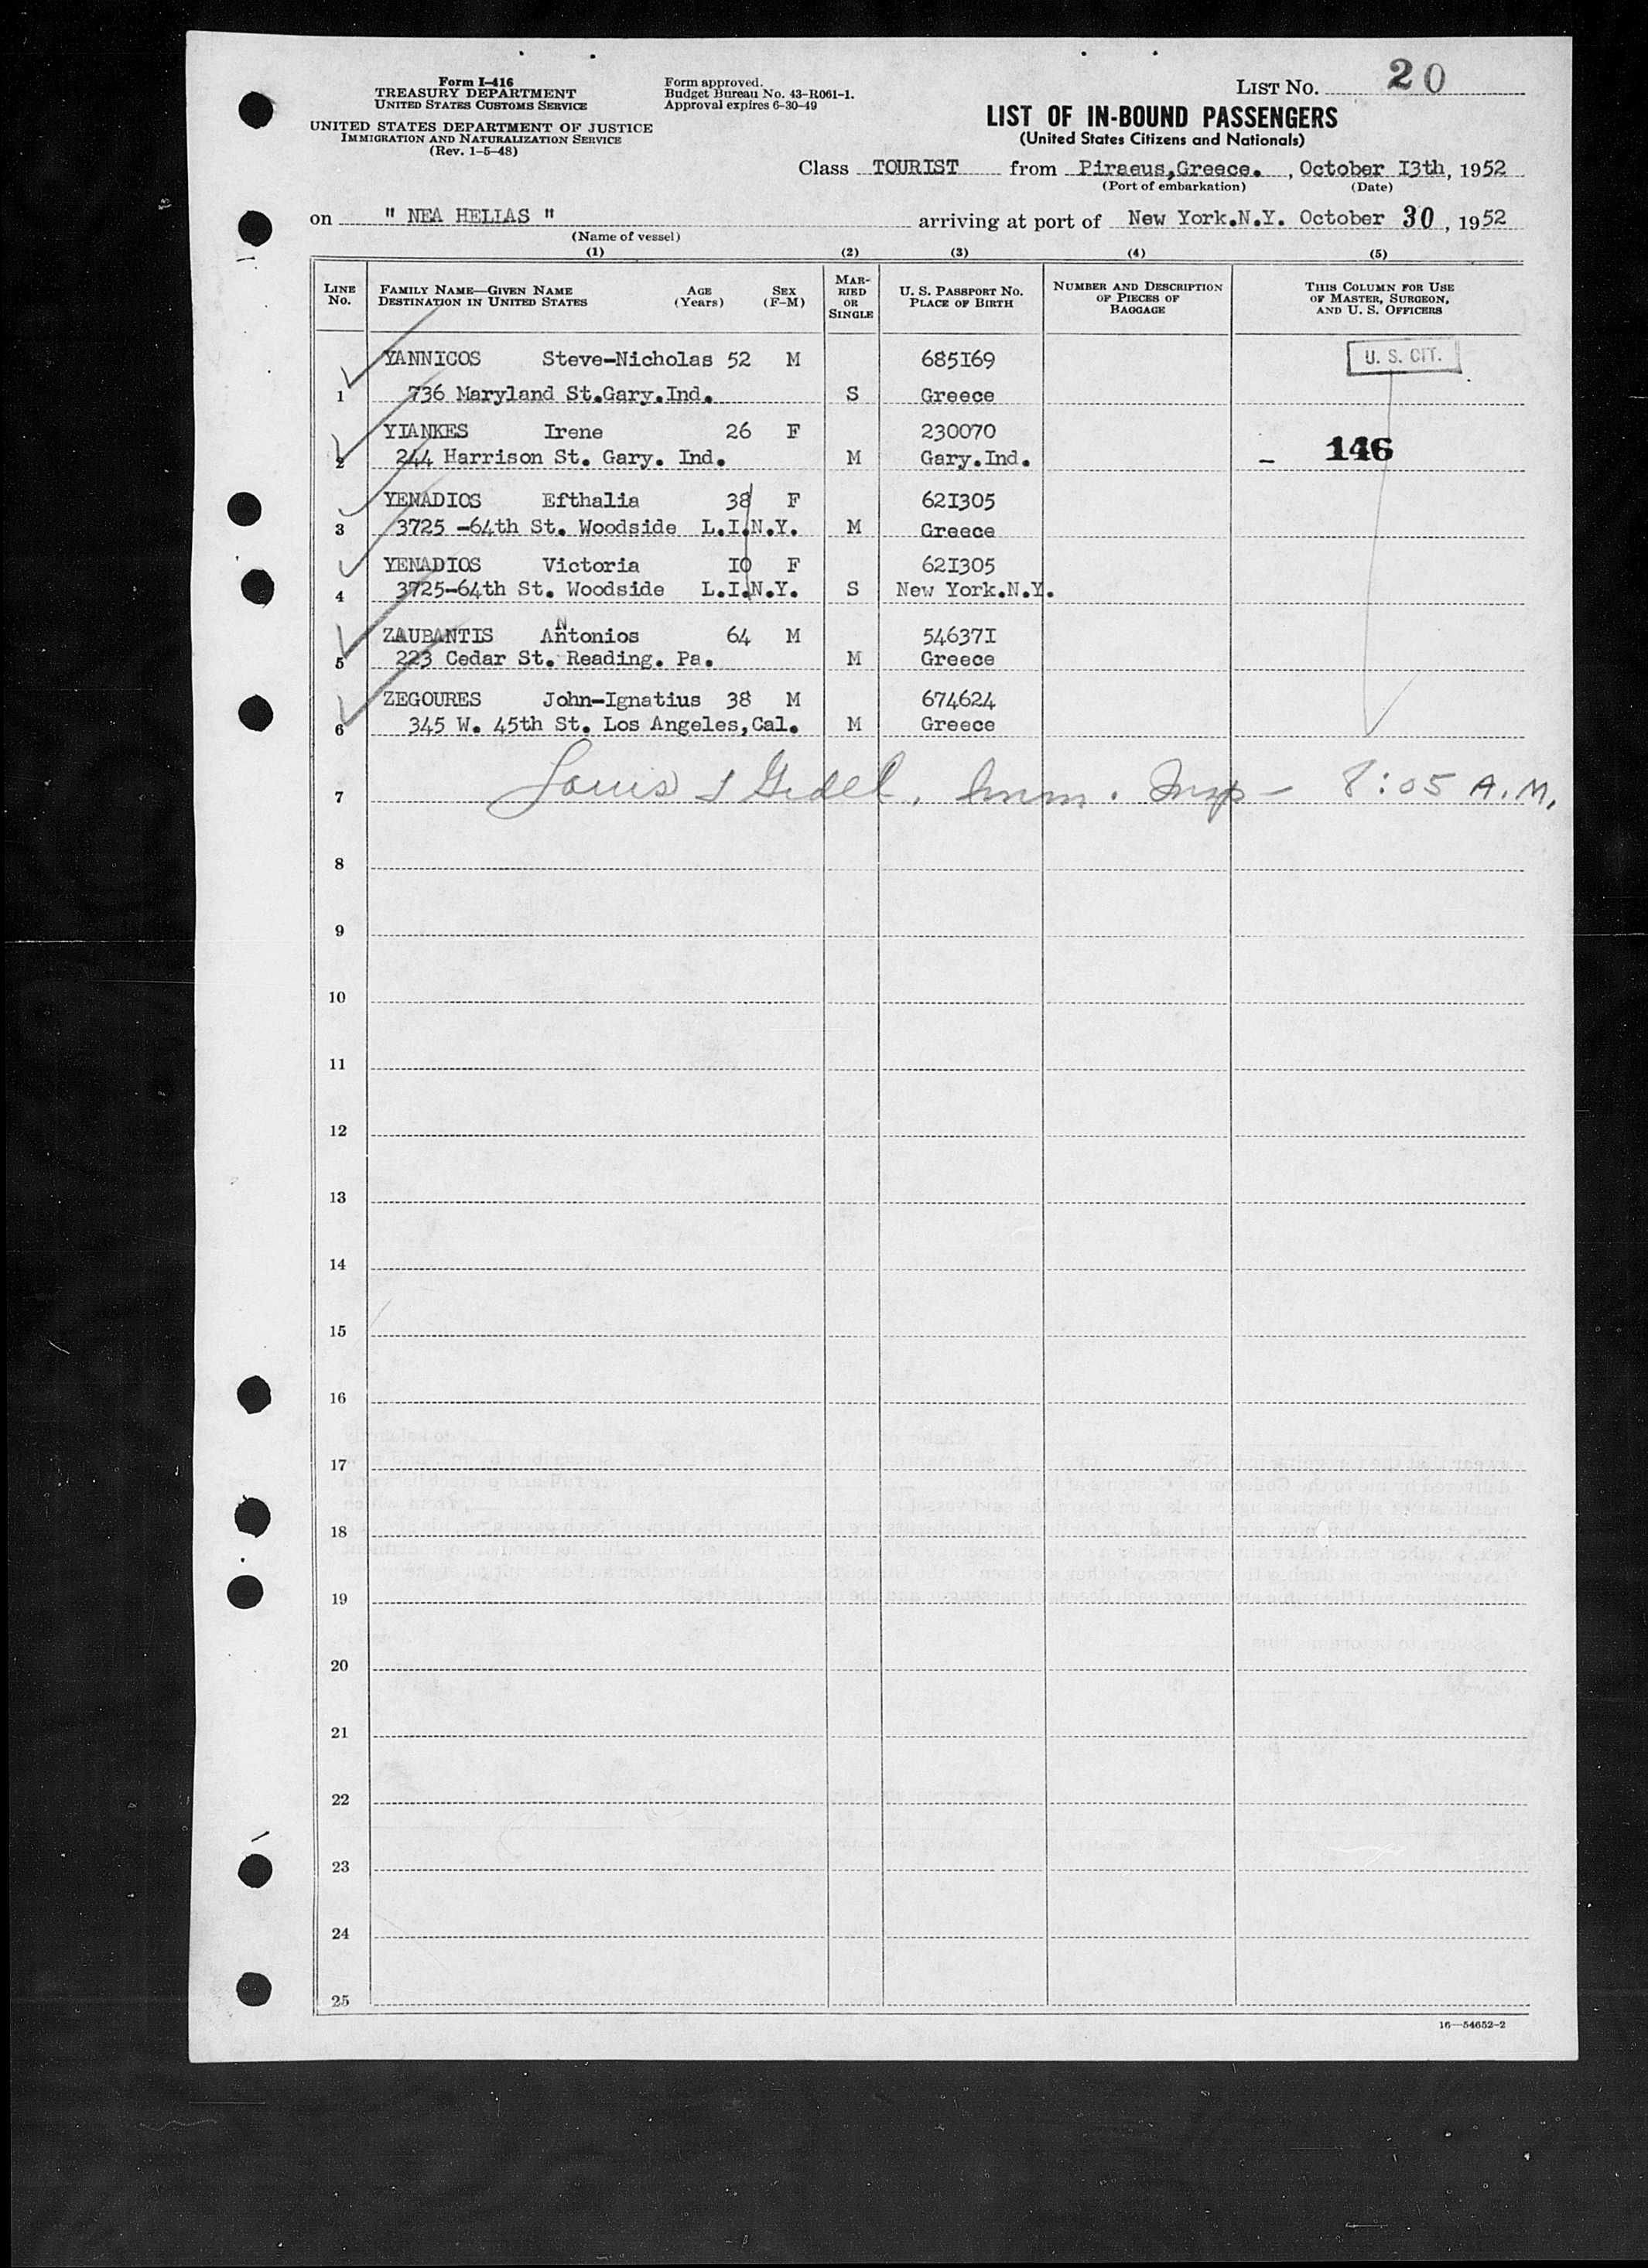 Form I-416
TREASURY DEPARTMENT
UNITED STATES CUSTOMS SERVICE
UNITED STATES DEPARTMENT OF JUSTICE
IMMIGRATION AND NATURALIZATION SERVICE
(Rev. 1-5-48)
Form approved.
Budget Bureau No. 43-R061-1.
Approval expires 6-30-49
LIST NO. 20
LIST OF IN-BOUND PASSENGERS
(United States Citizens and Nationals)
Class TOURIST from Piraeus,Greece. , October I3th, 1952
(Port of embarkation) (Date)
on " NEA HELLAS " arriving at port of New York.N.Y. October 30 , 1952
(Name of vessel)
(1) (2) (3) (4) (5)
LINE No. FAMILY NAME—GIVEN NAME DESTINATION IN UNITED STATES AGE (Years) SEX (F-M) MARRIED OR SINGLE U. S. PASSPORT NO. PLACE OF BIRTH NUMBER AND DESCRIPTION OF PIECES OF BAGGAGE THIS COLUMN FOR USE OF MASTER, SURGEON, AND U. S. OFFICERS
YANNICOS Steve-Nicholas 52 M 685I69 U. S. CIT.
1 736 Maryland St.Gary.Ind. S Greece
YIANKES Irene 26 F 230070
2 244 Harrison St. Gary. Ind. M Gary.Ind. – 146
YENADIOS Efthalia 38 F 62I305
3 3725 -64th St. Woodside L.I.N.Y. M Greece
YENADIOS Victoria I0 F 62I305
4 3725-64th St. Woodside L.I.N.Y. S New York.N.Y.
ZAUBANTIS Antonios 64 M 54637I
5 223 Cedar St. Reading. Pa. M Greece
ZEGOURES John-Ignatius 38 M 674624
6 345 W. 45th St. Los Angeles,Cal. M Greece
7 Louis Imm. Insp – 8:05 A.M.
8
9
10
11
12
13
14
15
16
17
18
19
20
21
22
23
24
25
16—54652-2